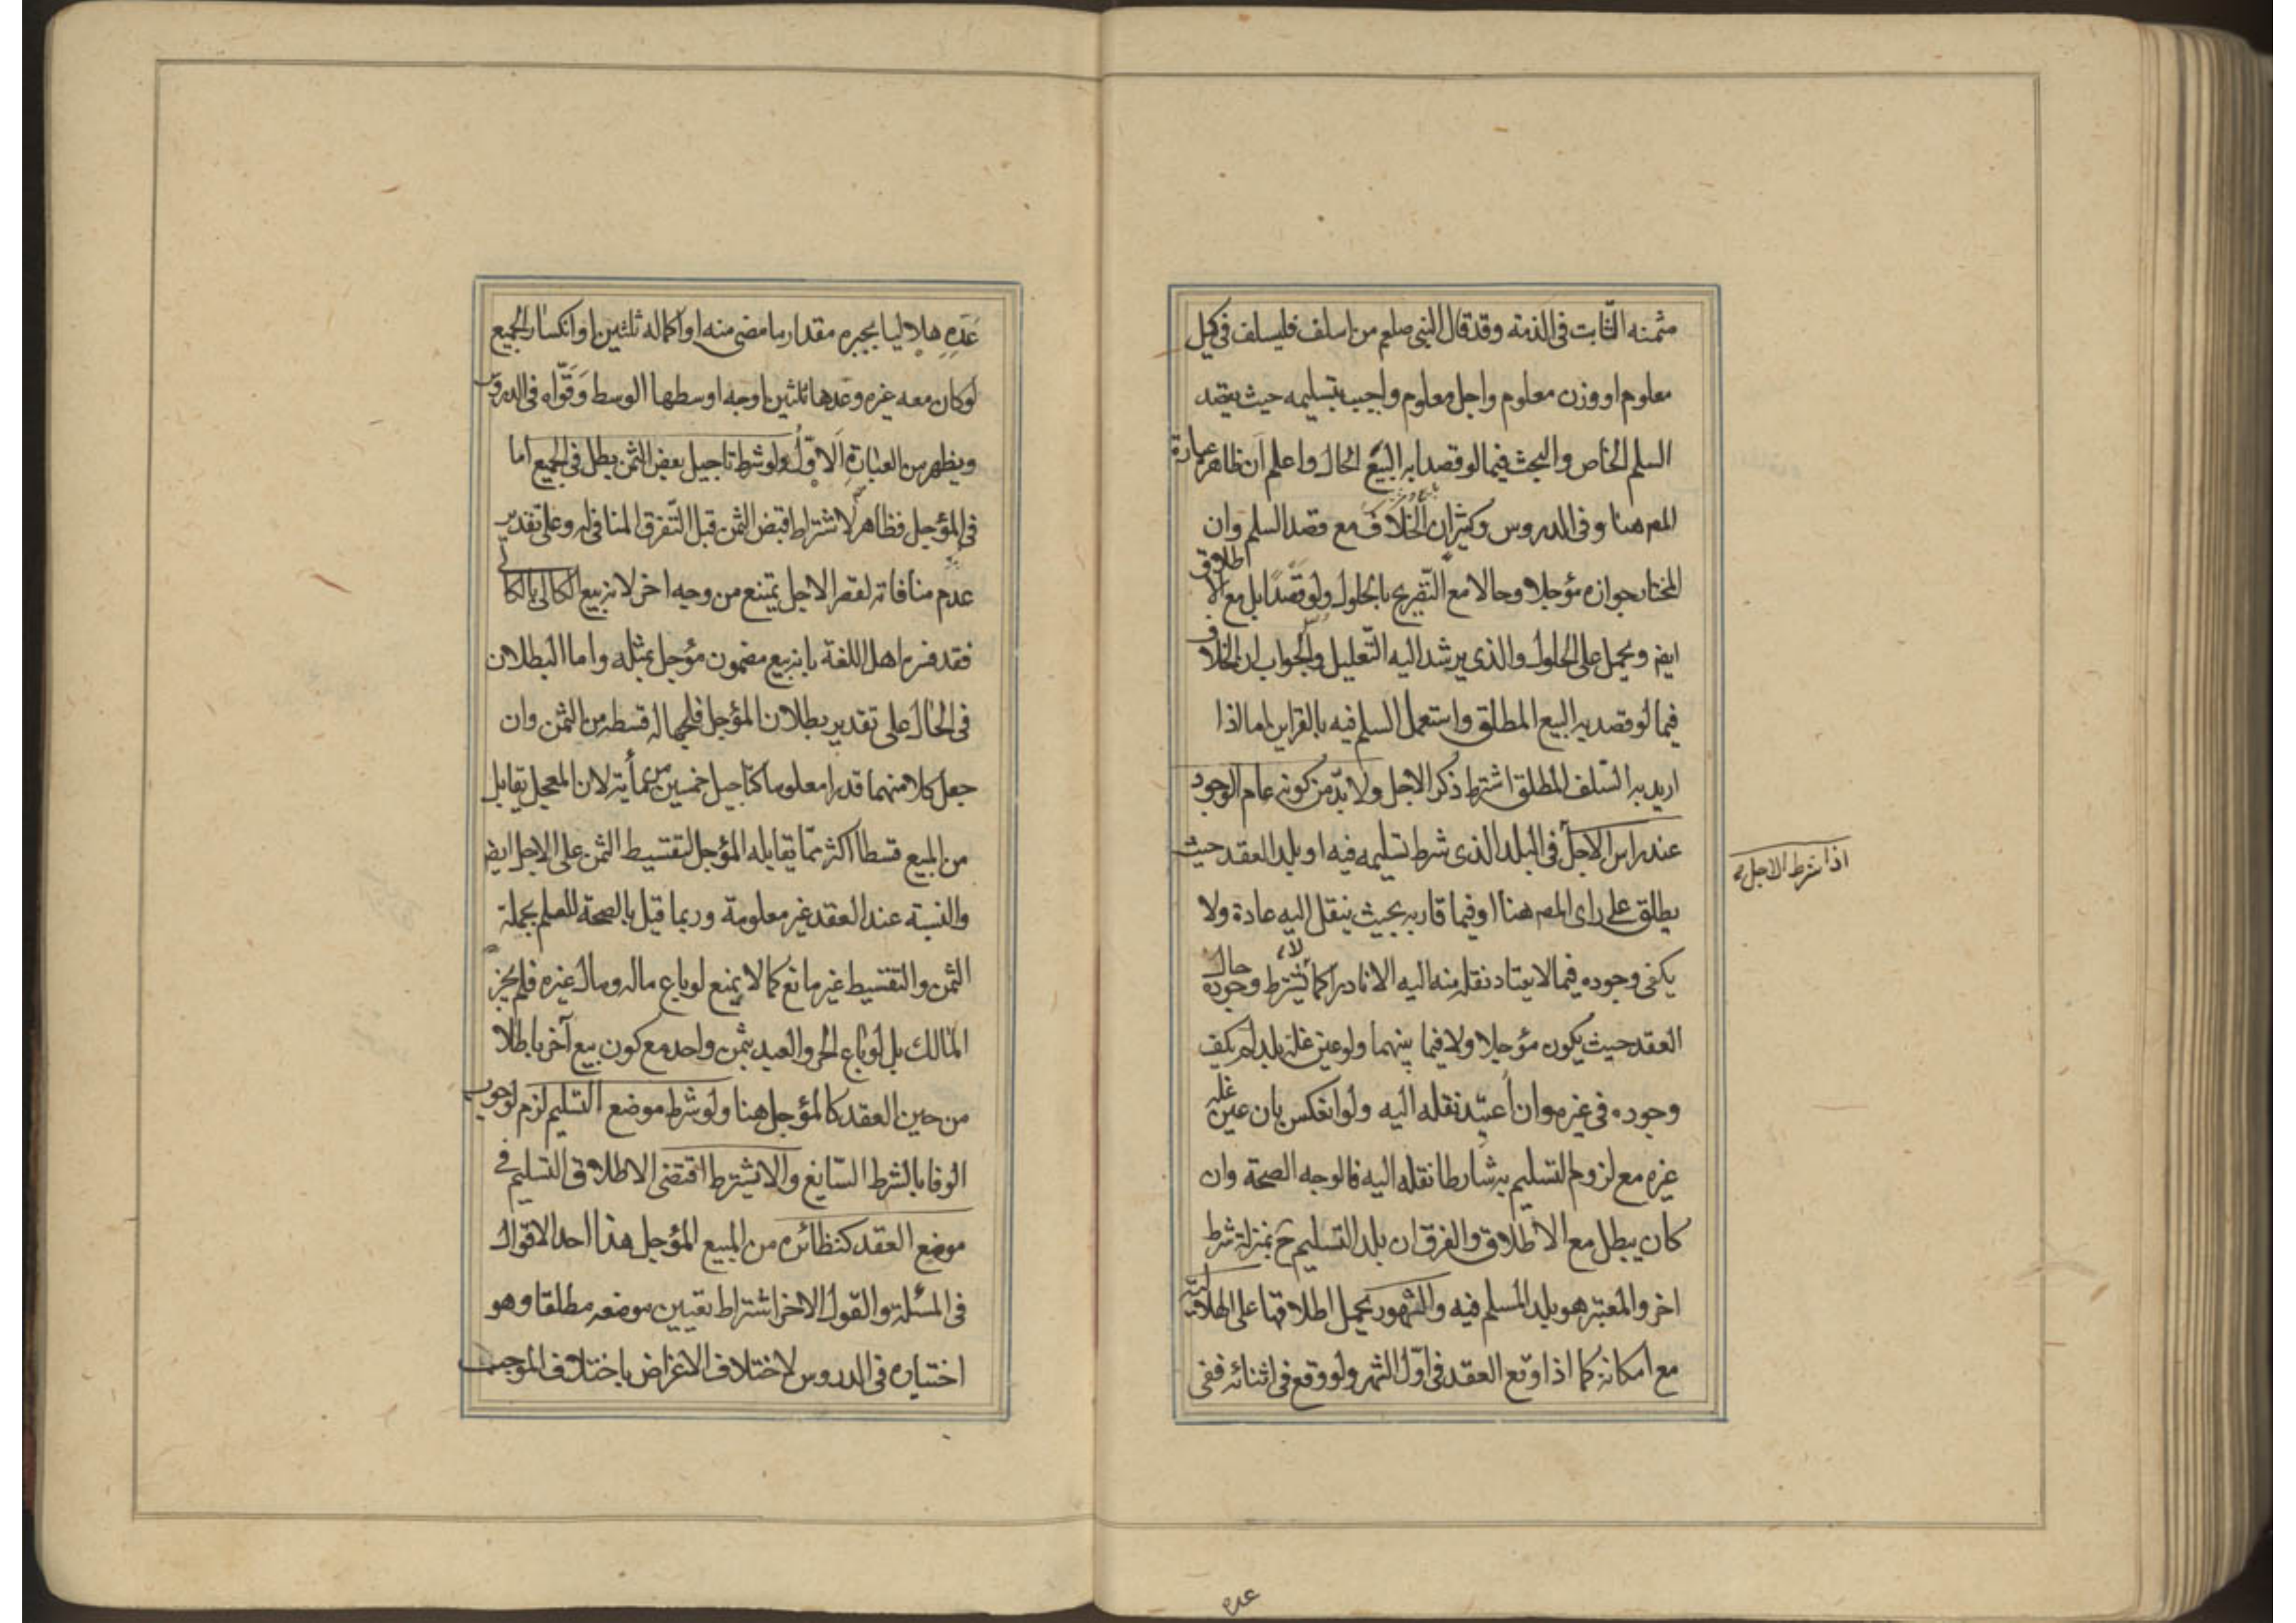 مثمنه الثابت فى الذمة وقد قال النبى صلعم من اسلف فليسلف فى كيل
معلوم او وزن معلوم واجل معلوم واجيب بتسليمه حيث يقصد
السلم الخاص والبحث فيما لو قصد به البيع الحال واعلم ان ظاهر عبارة
المص هنا وفى الدروس وكثير ان الخلاف مع قصد السلم وان
المختار جوازه مؤجلا وحالا مع التصريح بالحلول ولو قصدا بل مع الاطلاق
ايض ويحمل على الحلول والذى يرشد اليه التعليل والجواب ان الخلاف
فيما لو قصد به البيع المطلق واستعمل السلم فيه بالقراين اما اذا
اريد به السلف المطلق اشترط ذكر الاجل ولا بد من كونه عام الوجود
عند راس الاجل فى البلد الذى شرط تسليمه فيه او بلد العقد حيث
يطلق على راى المص هنا او فيما قاربه بحيث ينقل اليه عادة ولا
يكفى وجوده فيما لا يعتاد نقله منه اليه الا نادرا كما لا يشترط وجوده حال
العقد حيث يكون مؤجلا ولا فيما بينهما ولو عين غلة بلد لم يكف
وجوده فى غيره وان اعتيد نقله اليه ولو انعكس بان عين غلة
غيره مع لزوم التسليم به شارطا نقله اليه فالوجه الصحة وان
كان يبطل مع الاطلاق والفرق ان بلد التسليم ح بمنزلة شرط
اخر والمعتبر هو بلد المسلم فيه والشهور يحمل اطلاقها على الهلالية
مع امكانه كما اذا وقع العقد فى اول الشهر ولو وقع فى اثنائه ففى
اذا شرط الاجل
عده
عده هلاليا يجبره مقدار ما مضى منه او اكماله ثلثين او انكسار الجميع
لو كان معه غيره وعدها ثلثين اوجه اوسطها الوسط وقواه فى الدروس
ويظهر من العبارة الاول ولو شرط تاجيل بعض الثمن بطل فى الجميع اما
فى المؤجل فظاهر لاشتراط قبض الثمن قبل التفرق المنافى له وعلى تقدير
عدم منافاته لقصر الاجل يمتنع من وجه اخر لانه بيع الكالى بالكالى
فقد فسره اهل اللغة بانه بيع مضمون مؤجل بمثله واما البطلان
فى الحال على تقدير بطلان المؤجل فلجهالة قسطه من الثمن وان
جعل كلا منهما قدرا معلوما كتاجيل خمسين من مأية لان المعجل يقابل
من المبيع قسطا اكثر مما يقابله المؤجل لتقسيط الثمن على الاجل ايض
والنسبة عند العقد غير معلومة وربما قيل بالصحة للعلم بجملة
الثمن والتقسيط غير مانع كما لا يمنع لو باع ماله ومال غيره فلم يجز
المالك بل لو باع الحر والعبد بثمن واحد مع كون بيع آخر باطلا
من حين العقد كالمؤجل هنا ولو شرط موضع التسليم لزم لوجوب
الوفا بالشرط السايغ والا يشترط اقتضى الاطلاق التسليم فى
موضع العقد كنظائره من المبيع المؤجل هذا احد الاقوال
فى المسئلة والقول الاخر اشتراط تعيين موضعه مطلقا وهو
اختياره فى الدروس لاختلاف الاغراض باختلافه الموجب